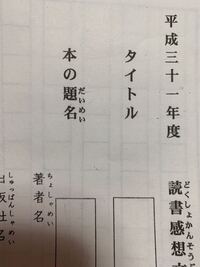 平成三十一年度
読書感想
どくしょかんそう
タイトル
本の題名
だいめい
著者名
ちょしゃめい
出版社名
しゅっぱんしゃめい